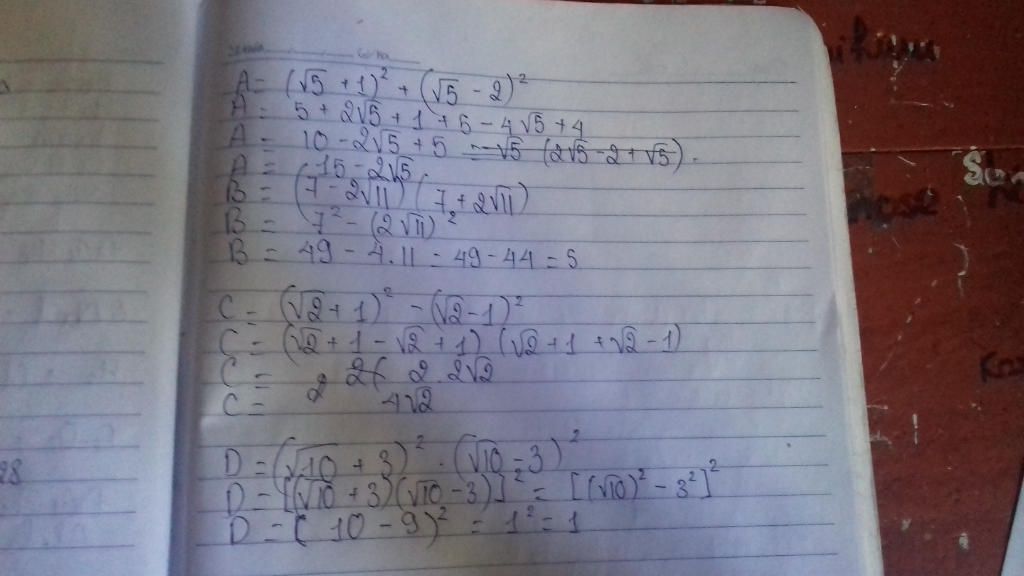 A = (√5 + 1)² + (√5 - 2)²
A = 5 + 2√5 + 1 + 5 - 4√5 + 4
A = 10 - 2√5 + 5 = -√5 (2√5 - 2 + √5).
A = 15 - 2√5
B = (7 - 2√11) (7 + 2√11)
B = 7² - (2√11)²
B = 49 - 4.11 = 49 - 44 = 5
C = (√2 + 1)² - (√2 - 1)²
C = (√2 + 1 - √2 + 1) (√2 + 1 + √2 - 1)
C = 2 . 2√2
C = 4√2
D = (√10 + 3)² . (√10 - 3)²
D = [(√10 + 3)(√10 - 3)]² = [(√10)² - 3²]²
D = (10 - 9)² = 1² = 1
28